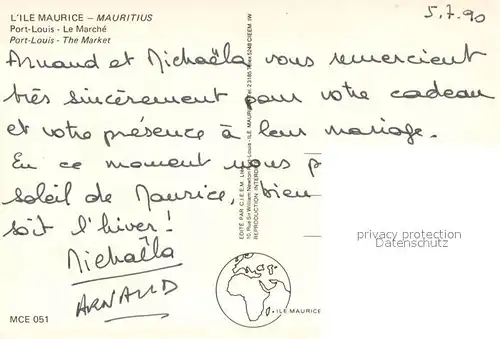 L'ILE MAURICE – MAURITIUS
Port-Louis - Le Marché
Port-Louis - The Market
5.7.90
Arnaud et Michaëla vous remercient
très sincèrement pour votre cadeau
et votre présence à leur mariage.
En ce moment nous p
soleil de Maurice, bien
soit l'hiver!
Michaëla
ARNAUD
EDITÉ PAR C.I.E.E.M.
10, Rue Sir William Newton Port-Louis - ILE MAURICE
REPRODUCTION INTERDITE
privacy protection
Datenschutz
ILE MAURICE
MCE 051